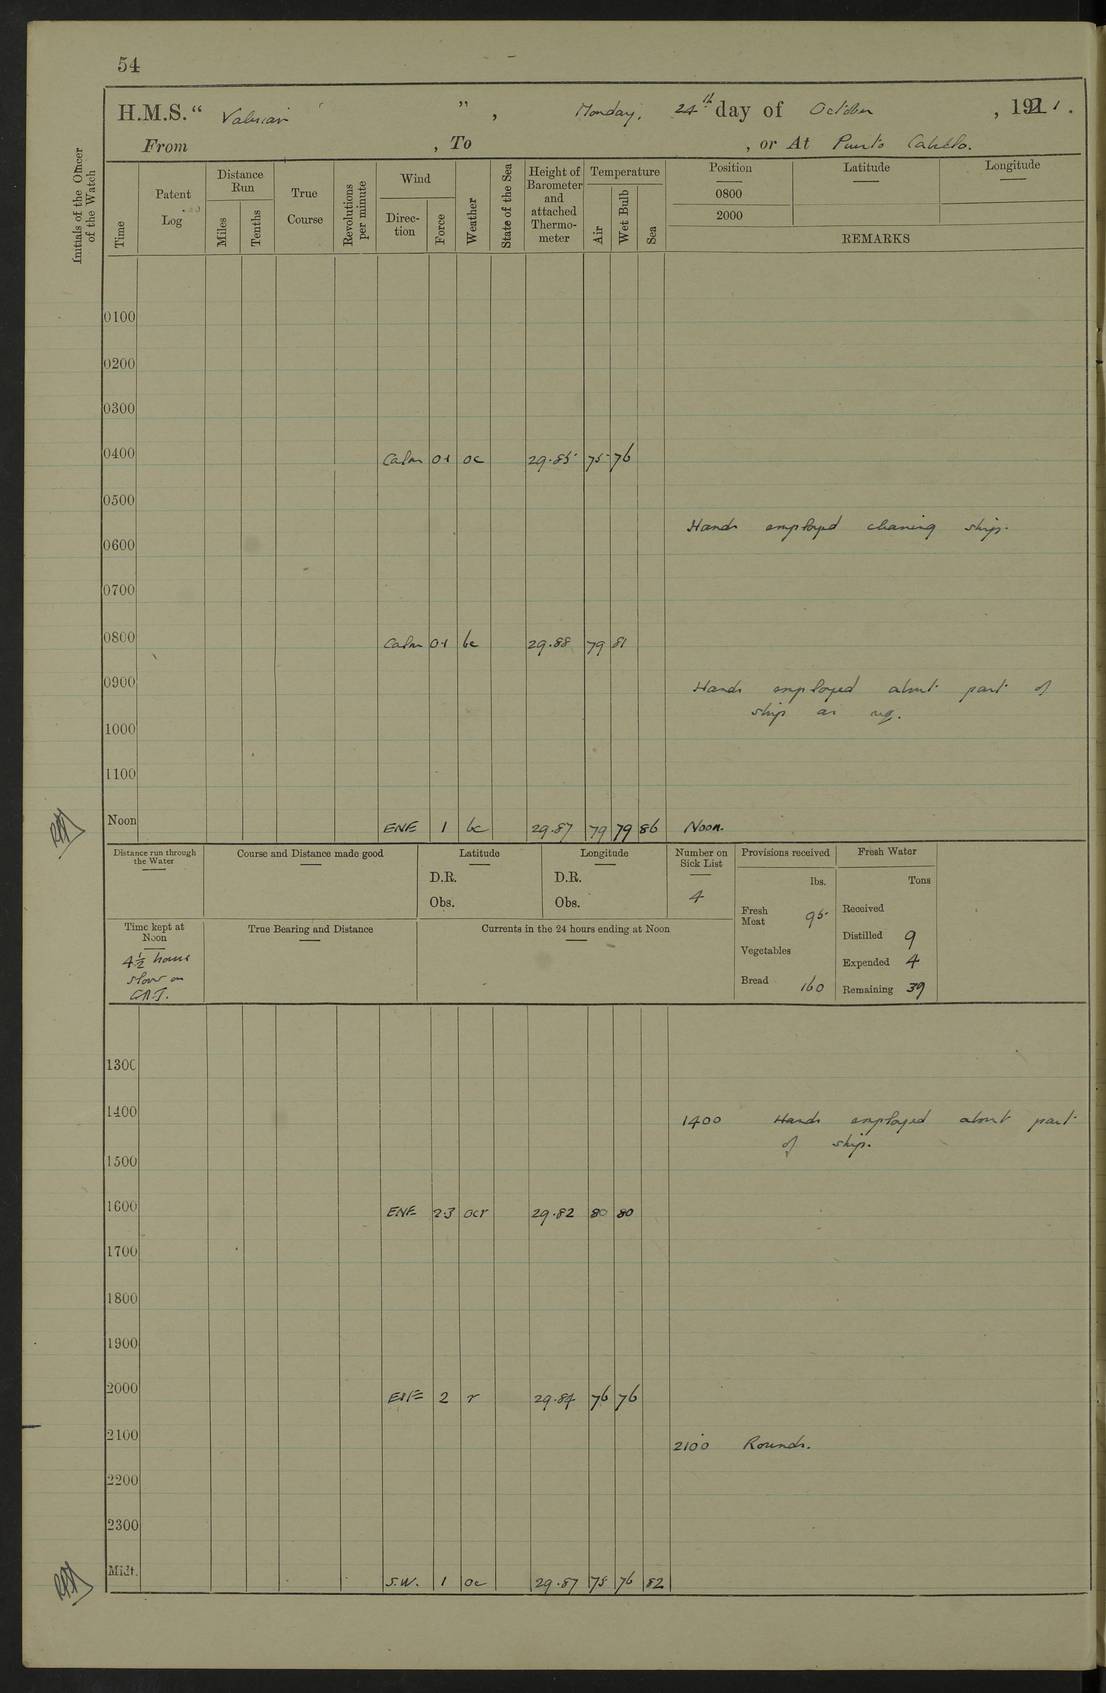 54
H.M.S. “ Valerian ” , Monday, 24th day of October , 1921.
From , To , or At Puerto Cabello.
Initials of the Officer of the Watch
Time
Patent Log
Distance Run
Miles
Tenths
True Course
Revolutions per minute
Wind
Direction
Force
Weather
State of the Sea
Height of Barometer and attached Thermometer
Temperature
Air
Wet Bulb
Sea
Position
Latitude
Longitude
0800
2000
REMARKS
0100
0200
0300
0400 Calm 0.1 oc 29.85 75 76
0500
Hands employed cleaning ship.
0600
0700
0800 Calm 0.1 bc 29.88 79 81
0900 Hands employed about part of
ship as req.
1000
1100
Noon ENE 1 bc 29.87 79 79 86 Noon.
Distance run through the Water
Course and Distance made good
Latitude
D.R.
Obs.
Longitude
D.R.
Obs.
Number on Sick List
4
Provisions received
lbs.
Fresh Meat 95
Vegetables
Bread 160
Fresh Water
Tons
Received
Distilled 9
Expended 4
Remaining 39
Time kept at Noon
4½ hours
slow on
G.M.T.
True Bearing and Distance
Currents in the 24 hours ending at Noon
1300
1400 1400 Hands employed about part
of ship.
1500
1600 ENE 2.3 ocr 29.82 80 80
1700
1800
1900
2000 ENE 2 r 29.84 76 76
2100 2100 Rounds.
2200
2300
Midt. S.W. 1 oc 29.87 75 76 82